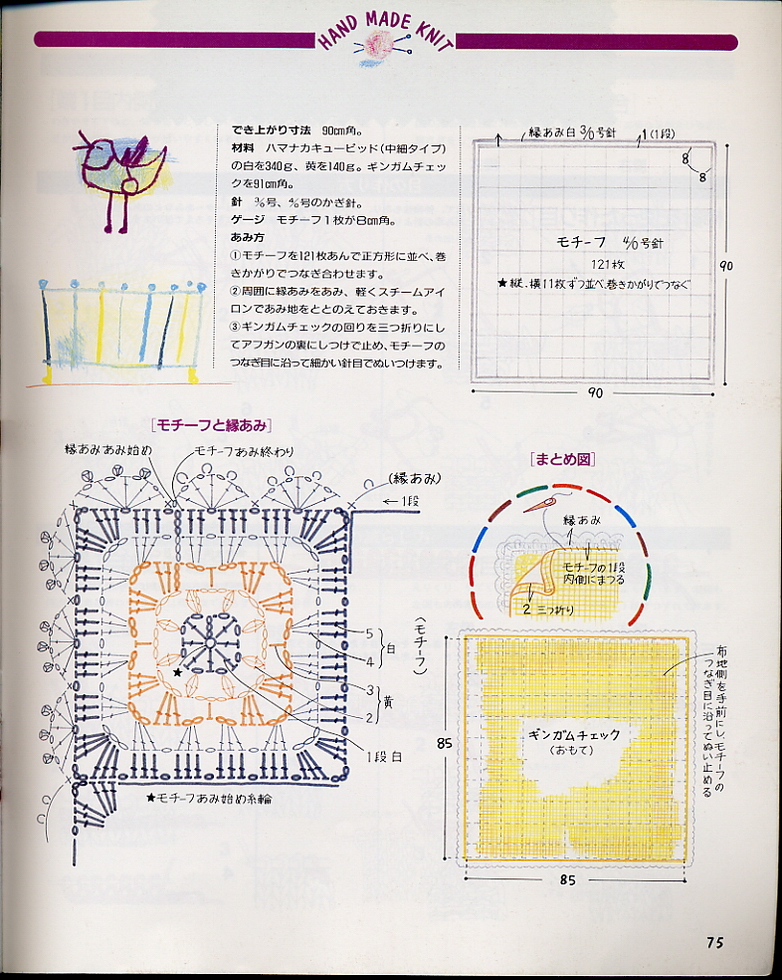 HAND MADE KNIT
でき上がり寸法 90cm角。
材料 ハマナカキューピッド(中細タイプ)
の白を340g、黄を140g。ギンガムチェッ
クを91cm角。
針 3/0号、4/0号のかぎ針。
ゲージ モチーフ1枚が8cm角。
あみ方
①モチーフを121枚あんで正方形に並べ、巻
きかがりでつなぎ合わせます。
②周囲に縁あみをあみ、軽くスチームアイ
ロンであみ地をととのえておきます。
③ギンガムチェックの回りを三つ折りにし
てアフガンの裏にしつけで止め、モチーフの
つなぎ目に沿って細かい針目でぬいつけます。
縁あみ白 3/0号針
1(1段)
8
8
モチーフ 4/0号針
121枚
★縦、横11枚ずつ並べ、巻きかがりでつなぐ
90
90
[モチーフと縁あみ]
縁あみあみ始め
モチーフあみ終わり
(縁あみ)
←1段
(モチーフ)
5
4
白
3
2
黄
1段白
★
★モチーフあみ始め糸輪
[まとめ図]
縁あみ
モチーフの1段
内側にまつる
2 三つ折り
布地側を手前にし、モチーフの
つなぎ目に沿ってぬい止める
ギンガムチェック
(おもて)
85
85
75